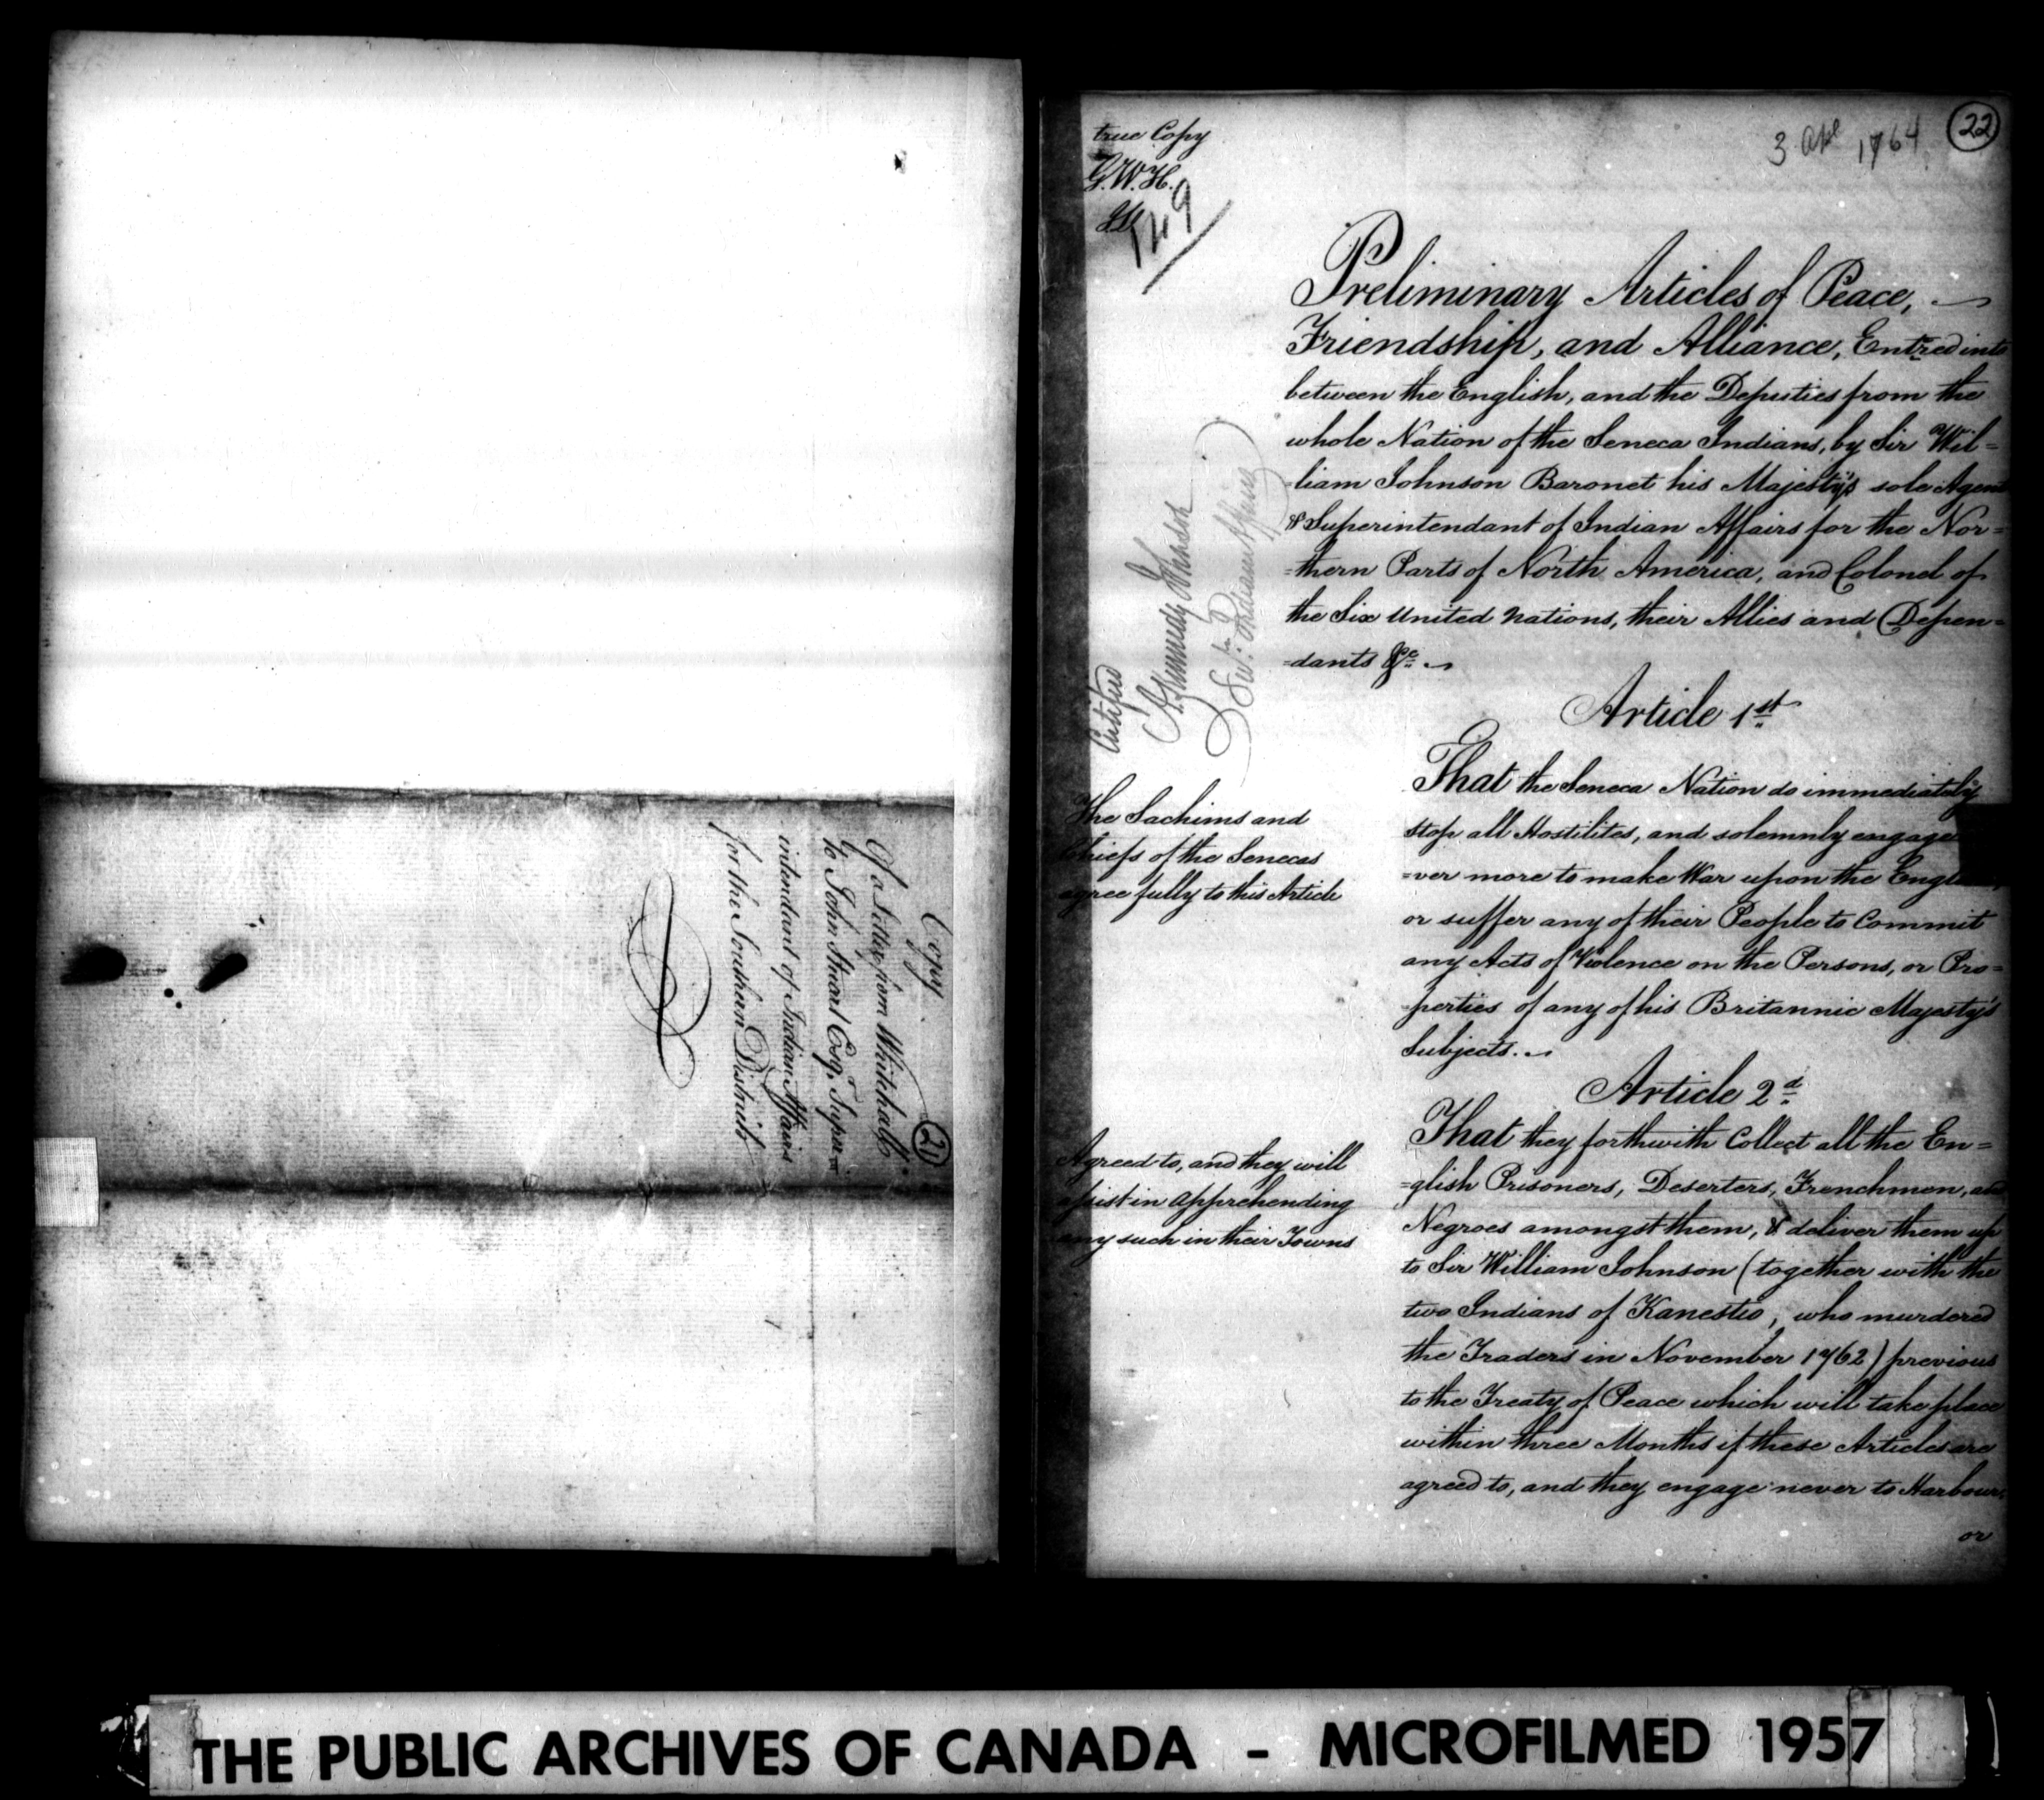 Copy
Of a Letter from Whitehall
to John Stuart Esqr. Super=
intendant of Indian Affairs
for the Southern District
21
true Copy
G.W.H.
149
3 Apl 1764
22
Preliminary Articles of Peace,
Friendship, and Alliance, Entred into
between the English, and the Deputies from the
whole Nation of the Seneca Indians, by Sir Wil=
=liam Johnson Baronet his Majesty's sole Agent
& Superintendant of Indian Affairs for the Nor=
=thern Parts of North America, and Colonel of
the Six United Nations, their Allies and Depen=
=dants &c.
Certified
Secry. Indian Affairs
Article 1st.
That the Seneca Nation do immediately
stop all Hostilites, and solemnly engage
=ver more to make War upon the English,
or suffer any of their People to Commit
any Acts of Violence on the Persons, or Pro=
=perties of any of his Britannic Majesty's
Subjects.
The Sachims and
Chiefs of the Senecas
agree fully to this Article
Article 2d.
That they forthwith Collect all the En=
=glish Prisoners, Deserters, Frenchmen, and
Negroes amongst them, & deliver them up
to Sir William Johnson (together with the
two Indians of Kanestio, who murdered
the Traders in November 1762) previous
to the Treaty of Peace which will take place
within three Months if these Articles are
agreed to, and they engage never to Harbour
or
Agreed to, and they will
assist in apprehending
any such in their Towns
THE PUBLIC ARCHIVES OF CANADA - MICROFILMED 1957